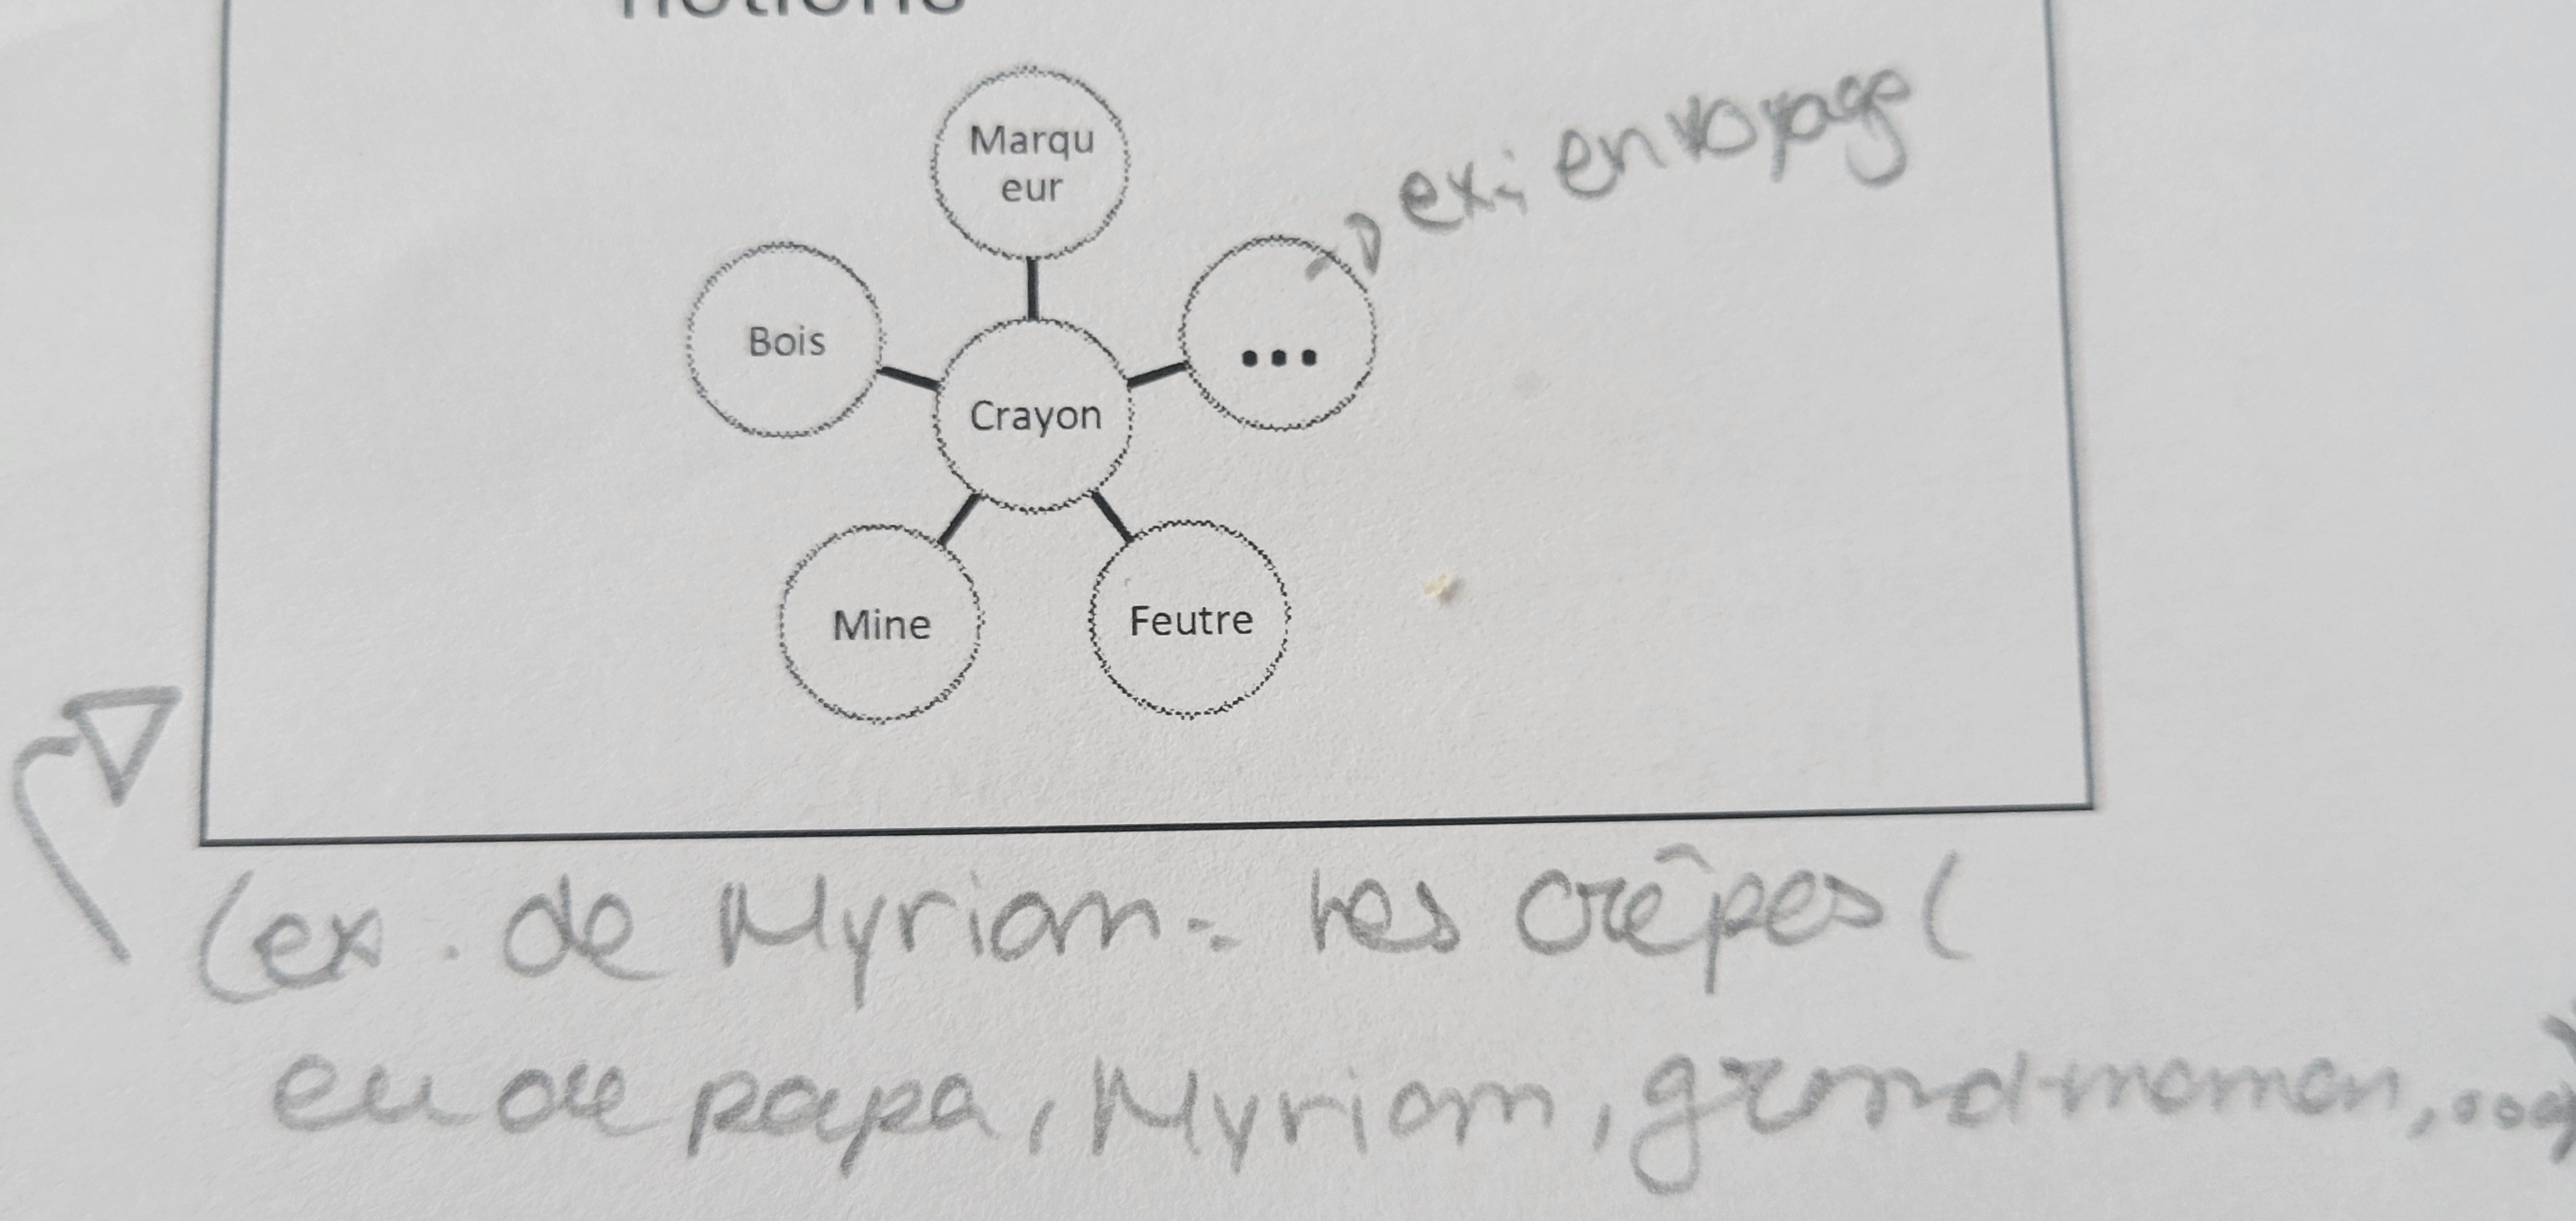 notions
Marqu
eur
ex: en voyage
Bois
...
Crayon
Mine
Feutre
(ex. de Myriam: les crêpes (
de papa, Myriam, grand-maman, ...)